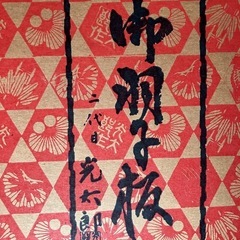 御羽子板
二代目 光太郎